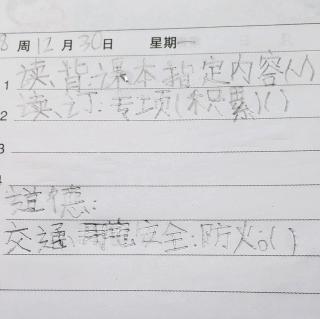 8周12月30日 星期一
1 读、背课本指定内容(√)
2 读、订:专项(积累)( )
3
道德:
交通 安全:防火。( )